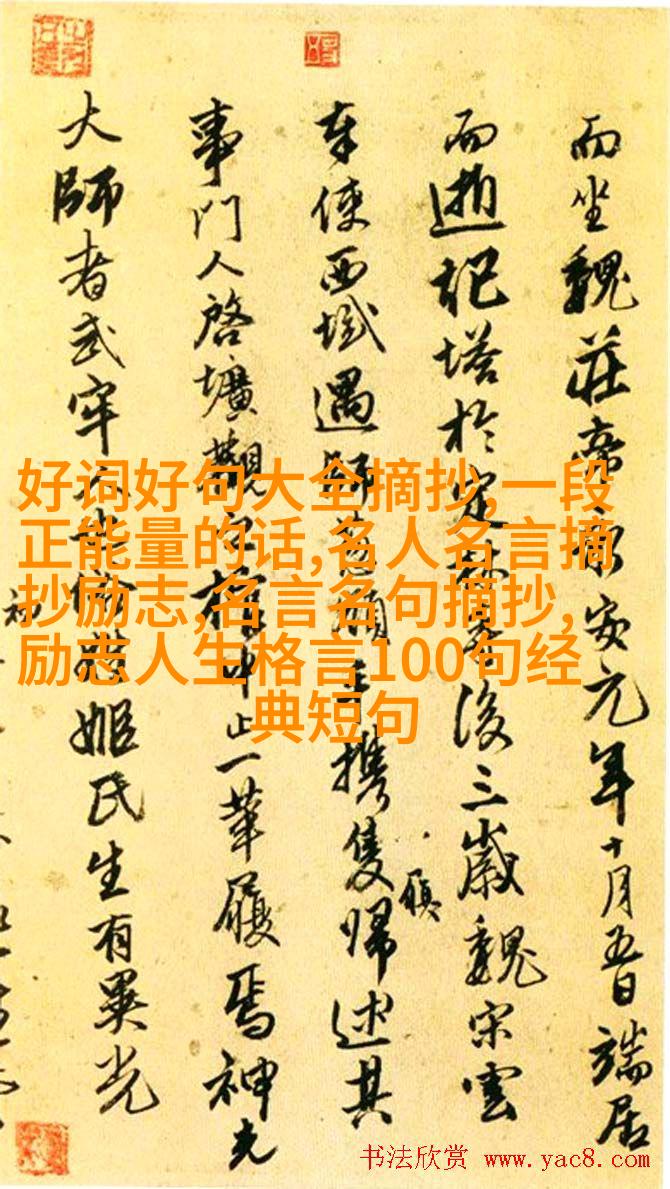 而坐魏莊帝永安元年十月五日端居
而逝塔於定林後三歲魏宋雲
奉使西域遇師葱嶺手攜隻歸述其
履
事門人啓壙觀之棺中止一革履焉神光
大師者武牢人姬氏生有異光
好词好句大全摘抄,一段
正能量的话,名人名言摘
抄励志,名言名句摘抄,
励志人生格言100句经
典短句
书法欣赏 www.yac8.com